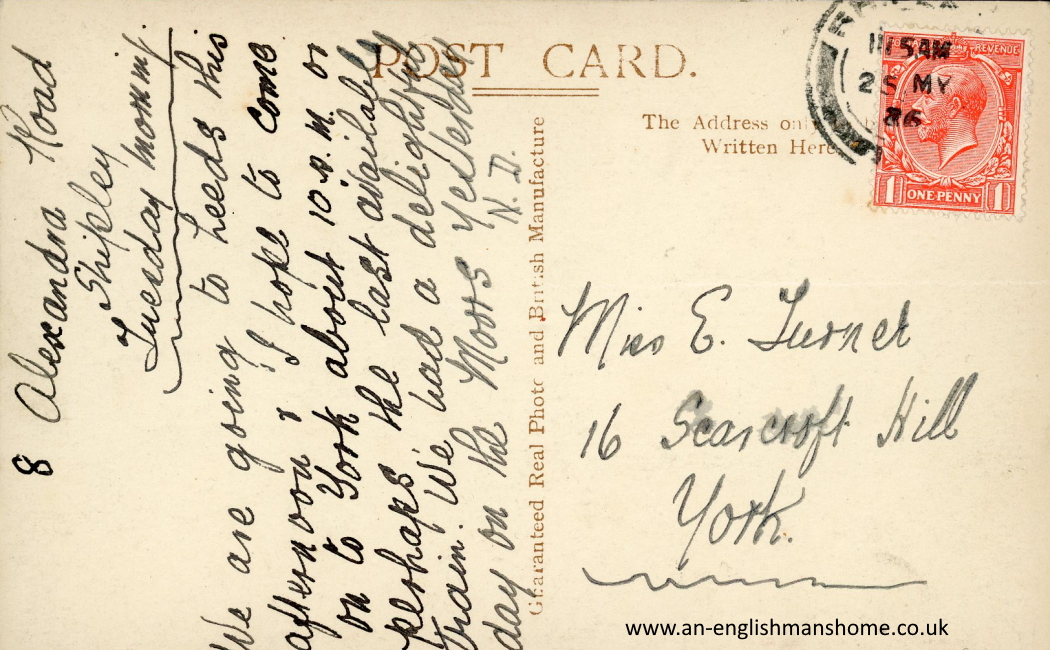 8 Alexandra Road
Shipley
Tuesday morning.
We are going to Leeds this
afternoon & I hope to come
on to York about 10 P.M. or
perhaps the last available
train. We had a delightful
day on the Moors yesterday
N. D.
POST CARD.
The Address only
Written Here.
Guaranteed Real Photo and British Manufacture
REVENUE
11 15 AM
25 MY
36
ONE PENNY
1 1
Miss E. Turner
16 Scarcroft Hill
York.
www.an-englishmanshome.co.uk